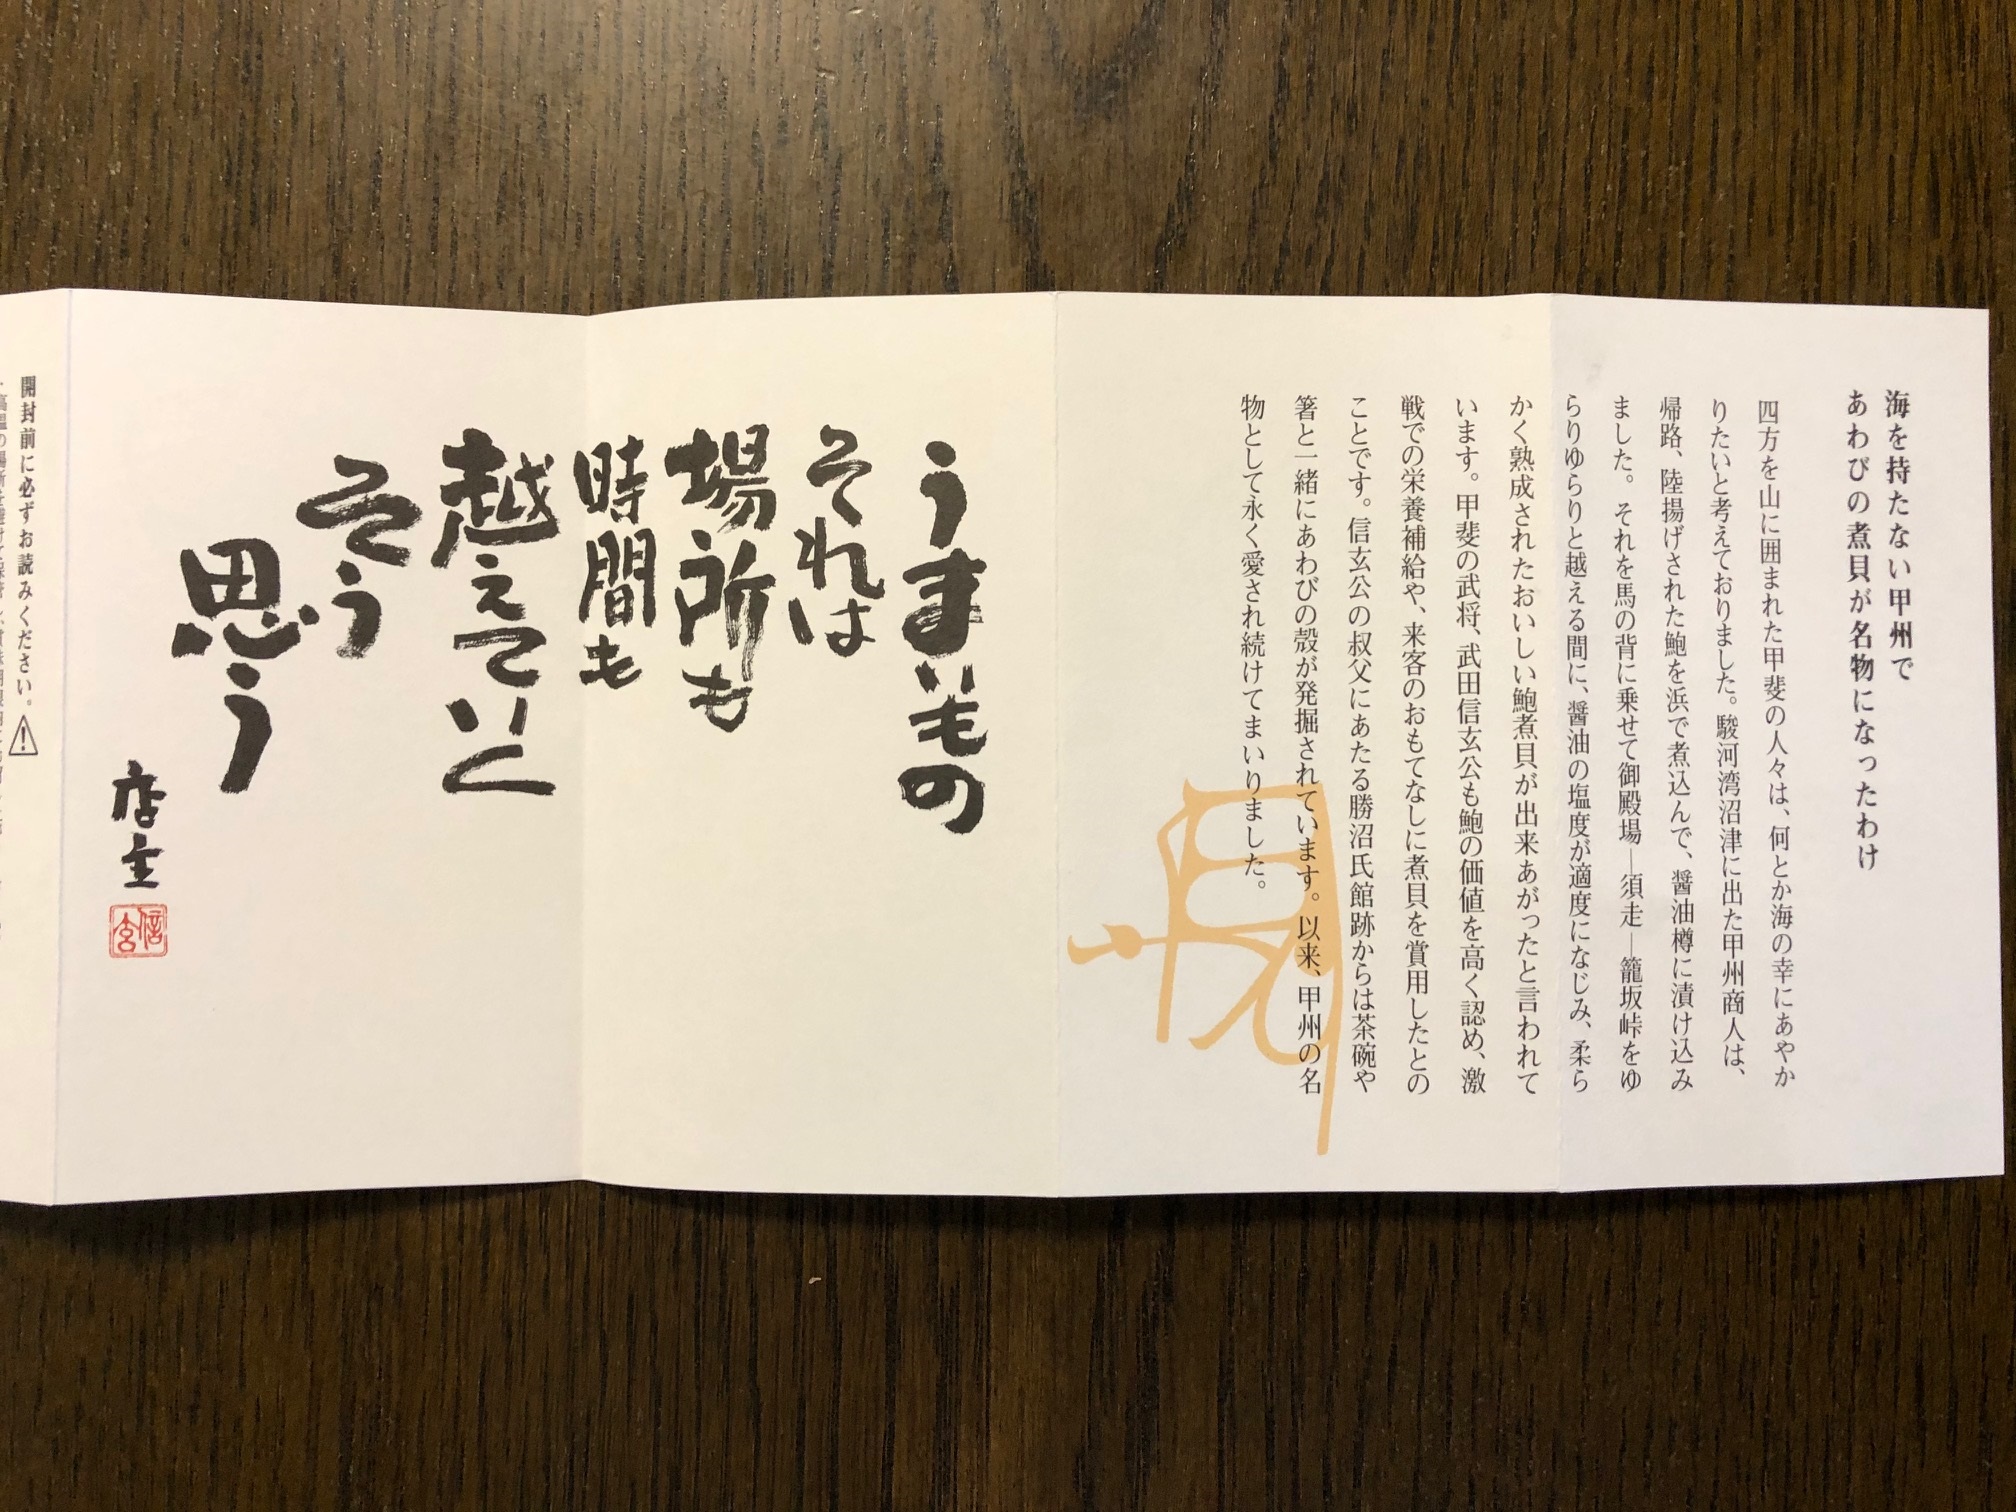 海を持たない甲州で
あわびの煮貝が名物になったわけ
四方を山に囲まれた甲斐の人々は、何とか海の幸にあやか
りたいと考えておりました。駿河湾沼津に出た甲州商人は、
帰路、陸揚げされた鮑を浜で煮込んで、醤油樽に漬け込み
ました。それを馬の背に乗せて御殿場―須走―籠坂峠をゆ
らりゆらりと越える間に、醤油の塩度が適度になじみ、柔ら
かく熟成されたおいしい鮑煮貝が出来あがったと言われて
います。甲斐の武将、武田信玄公も鮑の価値を高く認め、激
戦での栄養補給や、来客のおもてなしに煮貝を賞用したとの
ことです。信玄公の叔父にあたる勝沼氏館跡からは茶碗や
箸と一緒にあわびの殻が発掘されています。以来、甲州の名
物として永く愛され続けてまいりました。
うまいもの
それは
場所も
時間も
越えていく
そう
思う
店主
信玄
開封前に必ずお読みください。